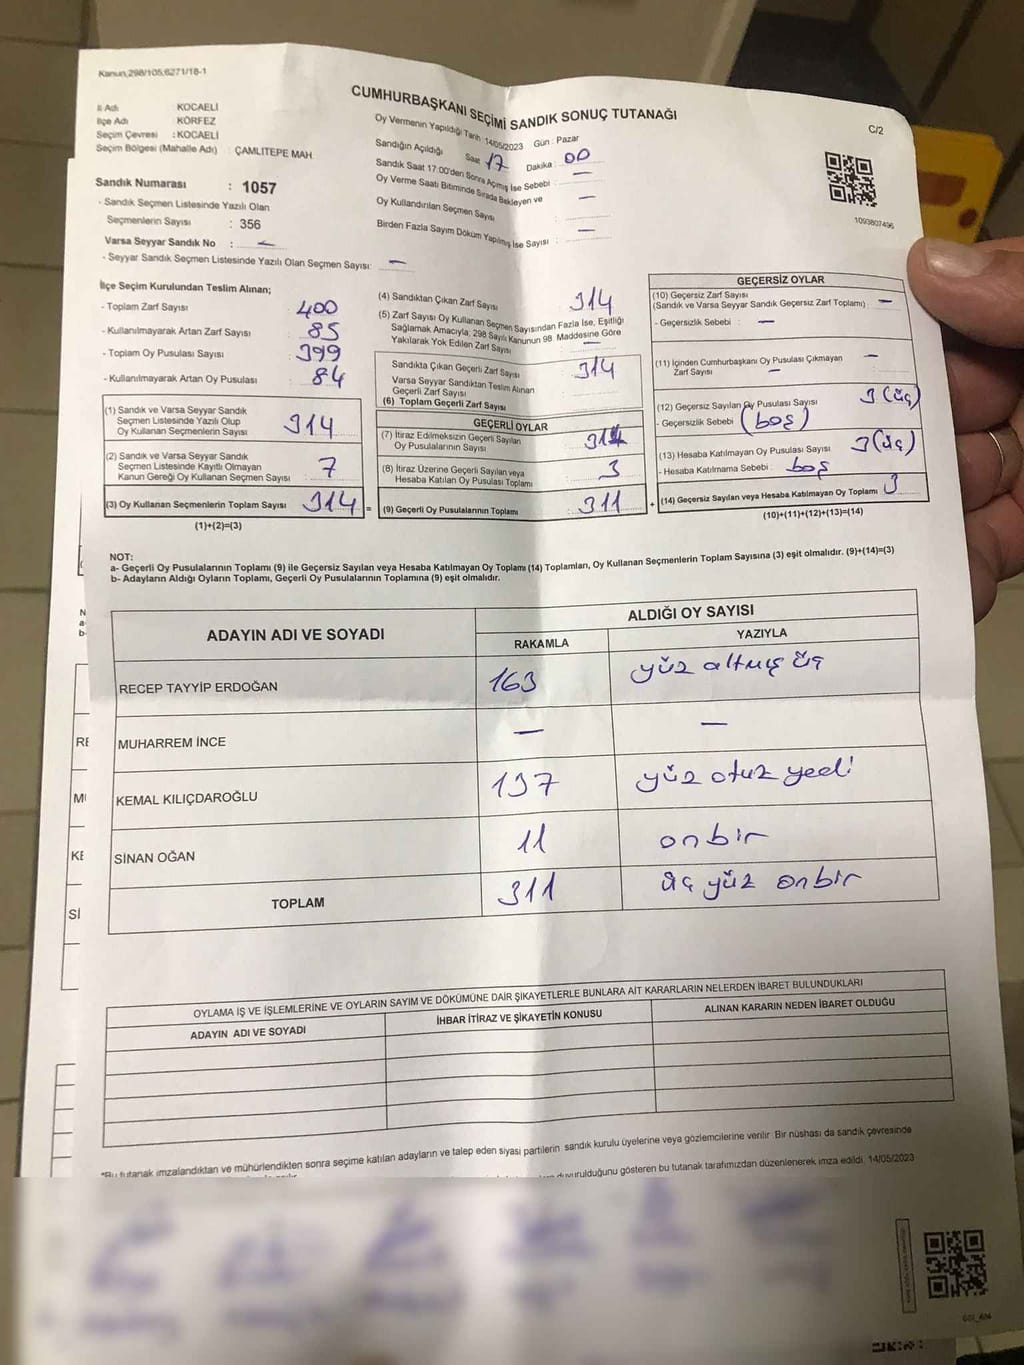 Kanun;298/105,6271/18-1
CUMHURBAŞKANI SEÇİMİ SANDIK SONUÇ TUTANAĞI
C/2
İl Adı KOCAELİ
İlçe Adı KÖRFEZ
Seçim Çevresi : KOCAELİ
Seçim Bölgesi (Mahalle Adı) : ÇAMLITEPE MAH.
Sandık Numarası : 1057
- Sandık Seçmen Listesinde Yazılı Olan
Seçmenlerin Sayısı : 356
Varsa Seyyar Sandık No : —
- Seyyar Sandık Seçmen Listesinde Yazılı Olan Seçmen Sayısı: —
Oy Vermenin Yapıldığı Tarih 14/05/2023 Gün : Pazar
Sandığın Açıldığı Saat 17 Dakika : 00
Sandık Saat 17:00'den Sonra Açmış İse Sebebi : —
Oy Verme Saati Bitiminde Sırada Bekleyen ve
Oy Kullandırılan Seçmen Sayısı : —
Birden Fazla Sayım Döküm Yapılmış İse Sayısı : —
1093807496
İlçe Seçim Kurulundan Teslim Alınan;
- Toplam Zarf Sayısı : 400
- Kullanılmayarak Artan Zarf Sayısı : 85
- Toplam Oy Pusulası Sayısı : 399
- Kullanılmayarak Artan Oy Pusulası : 84
(1) Sandık ve Varsa Seyyar Sandık
Seçmen Listesinde Yazılı Olup
Oy Kullanan Seçmenlerin Sayısı : 314
(2) Sandık ve Varsa Seyyar Sandık
Seçmen Listesinde Kayıtlı Olmayan
Kanun Gereği Oy Kullanan Seçmen Sayısı : 7
(3) Oy Kullanan Seçmenlerin Toplam Sayısı 314 =
(1)+(2)=(3)
(4) Sandıktan Çıkan Zarf Sayısı 314
(5) Zarf Sayısı Oy Kullanan Seçmen Sayısından Fazla İse, Eşitliği
Sağlamak Amacıyla, 298 Sayılı Kanunun 98. Maddesine Göre
Yakılarak Yok Edilen Zarf Sayısı —
Sandıkta Çıkan Geçerli Zarf Sayısı : 314
Varsa Seyyar Sandıktan Teslim Alınan
Geçerli Zarf Sayısı
(6) Toplam Geçerli Zarf Sayısı
GEÇERLİ OYLAR
(7) İtiraz Edilmeksizin Geçerli Sayılan
Oy Pusulalarının Sayısı :
(8) İtiraz Üzerine Geçerli Sayılan veya
Hesaba Katılan Oy Pusulası Toplamı : 3
(9) Geçerli Oy Pusulalarının Toplamı : 311 +
GEÇERSİZ OYLAR
(10) Geçersiz Zarf Sayısı
(Sandık ve Varsa Seyyar Sandık Geçersiz Zarf Toplamı) : —
- Geçersizlik Sebebi : —
(11) İçinden Cumhurbaşkanı Oy Pusulası Çıkmayan
Zarf Sayısı —
(12) Geçersiz Sayılan Oy Pusulası Sayısı 3 (üç)
- Geçersizlik Sebebi (boş)
(13) Hesaba Katılmayan Oy Pusulası Sayısı 3 (üç)
- Hesaba Katılmama Sebebi : boş
(14) Geçersiz Sayılan veya Hesaba Katılmayan Oy Toplamı 3
(10)+(11)+(12)+(13)=(14)
NOT:
a- Geçerli Oy Pusulalarının Toplamı (9) ile Geçersiz Sayılan veya Hesaba Katılmayan Oy Toplamı (14) Toplamları, Oy Kullanan Seçmenlerin Toplam Sayısına (3) eşit olmalıdır. (9)+(14)=(3)
b- Adayların Aldığı Oyların Toplamı, Geçerli Oy Pusulalarının Toplamına (9) eşit olmalıdır.
ADAYIN ADI VE SOYADI ALDIĞI OY SAYISI
RAKAMLA YAZIYLA
RECEP TAYYİP ERDOĞAN 163 yüz altmış üç
MUHARREM İNCE — —
KEMAL KILIÇDAROĞLU 137 yüz otuz yedi
SİNAN OĞAN 11 onbir
TOPLAM 311 üç yüz onbir
OYLAMA İŞ VE İŞLEMLERİNE VE OYLARIN SAYIM VE DÖKÜMÜNE DAİR ŞİKAYETLERLE BUNLARA AİT KARARLARIN NELERDEN İBARET BULUNDUKLARI
ADAYIN ADI VE SOYADI İHBAR İTİRAZ VE ŞİKAYETİN KONUSU ALINAN KARARIN NEDEN İBARET OLDUĞU
*Bu tutanak imzalandıktan ve mühürlendikten sonra seçime katılan adayların ve talep eden siyasi partilerin sandık kurulu üyelerine veya gözlemcilerine verilir. Bir nüshası da sandık çevresinde
duyurulduğunu gösteren bu tutanak tarafımızdan düzenlenerek imza edildi. 14/05/2023